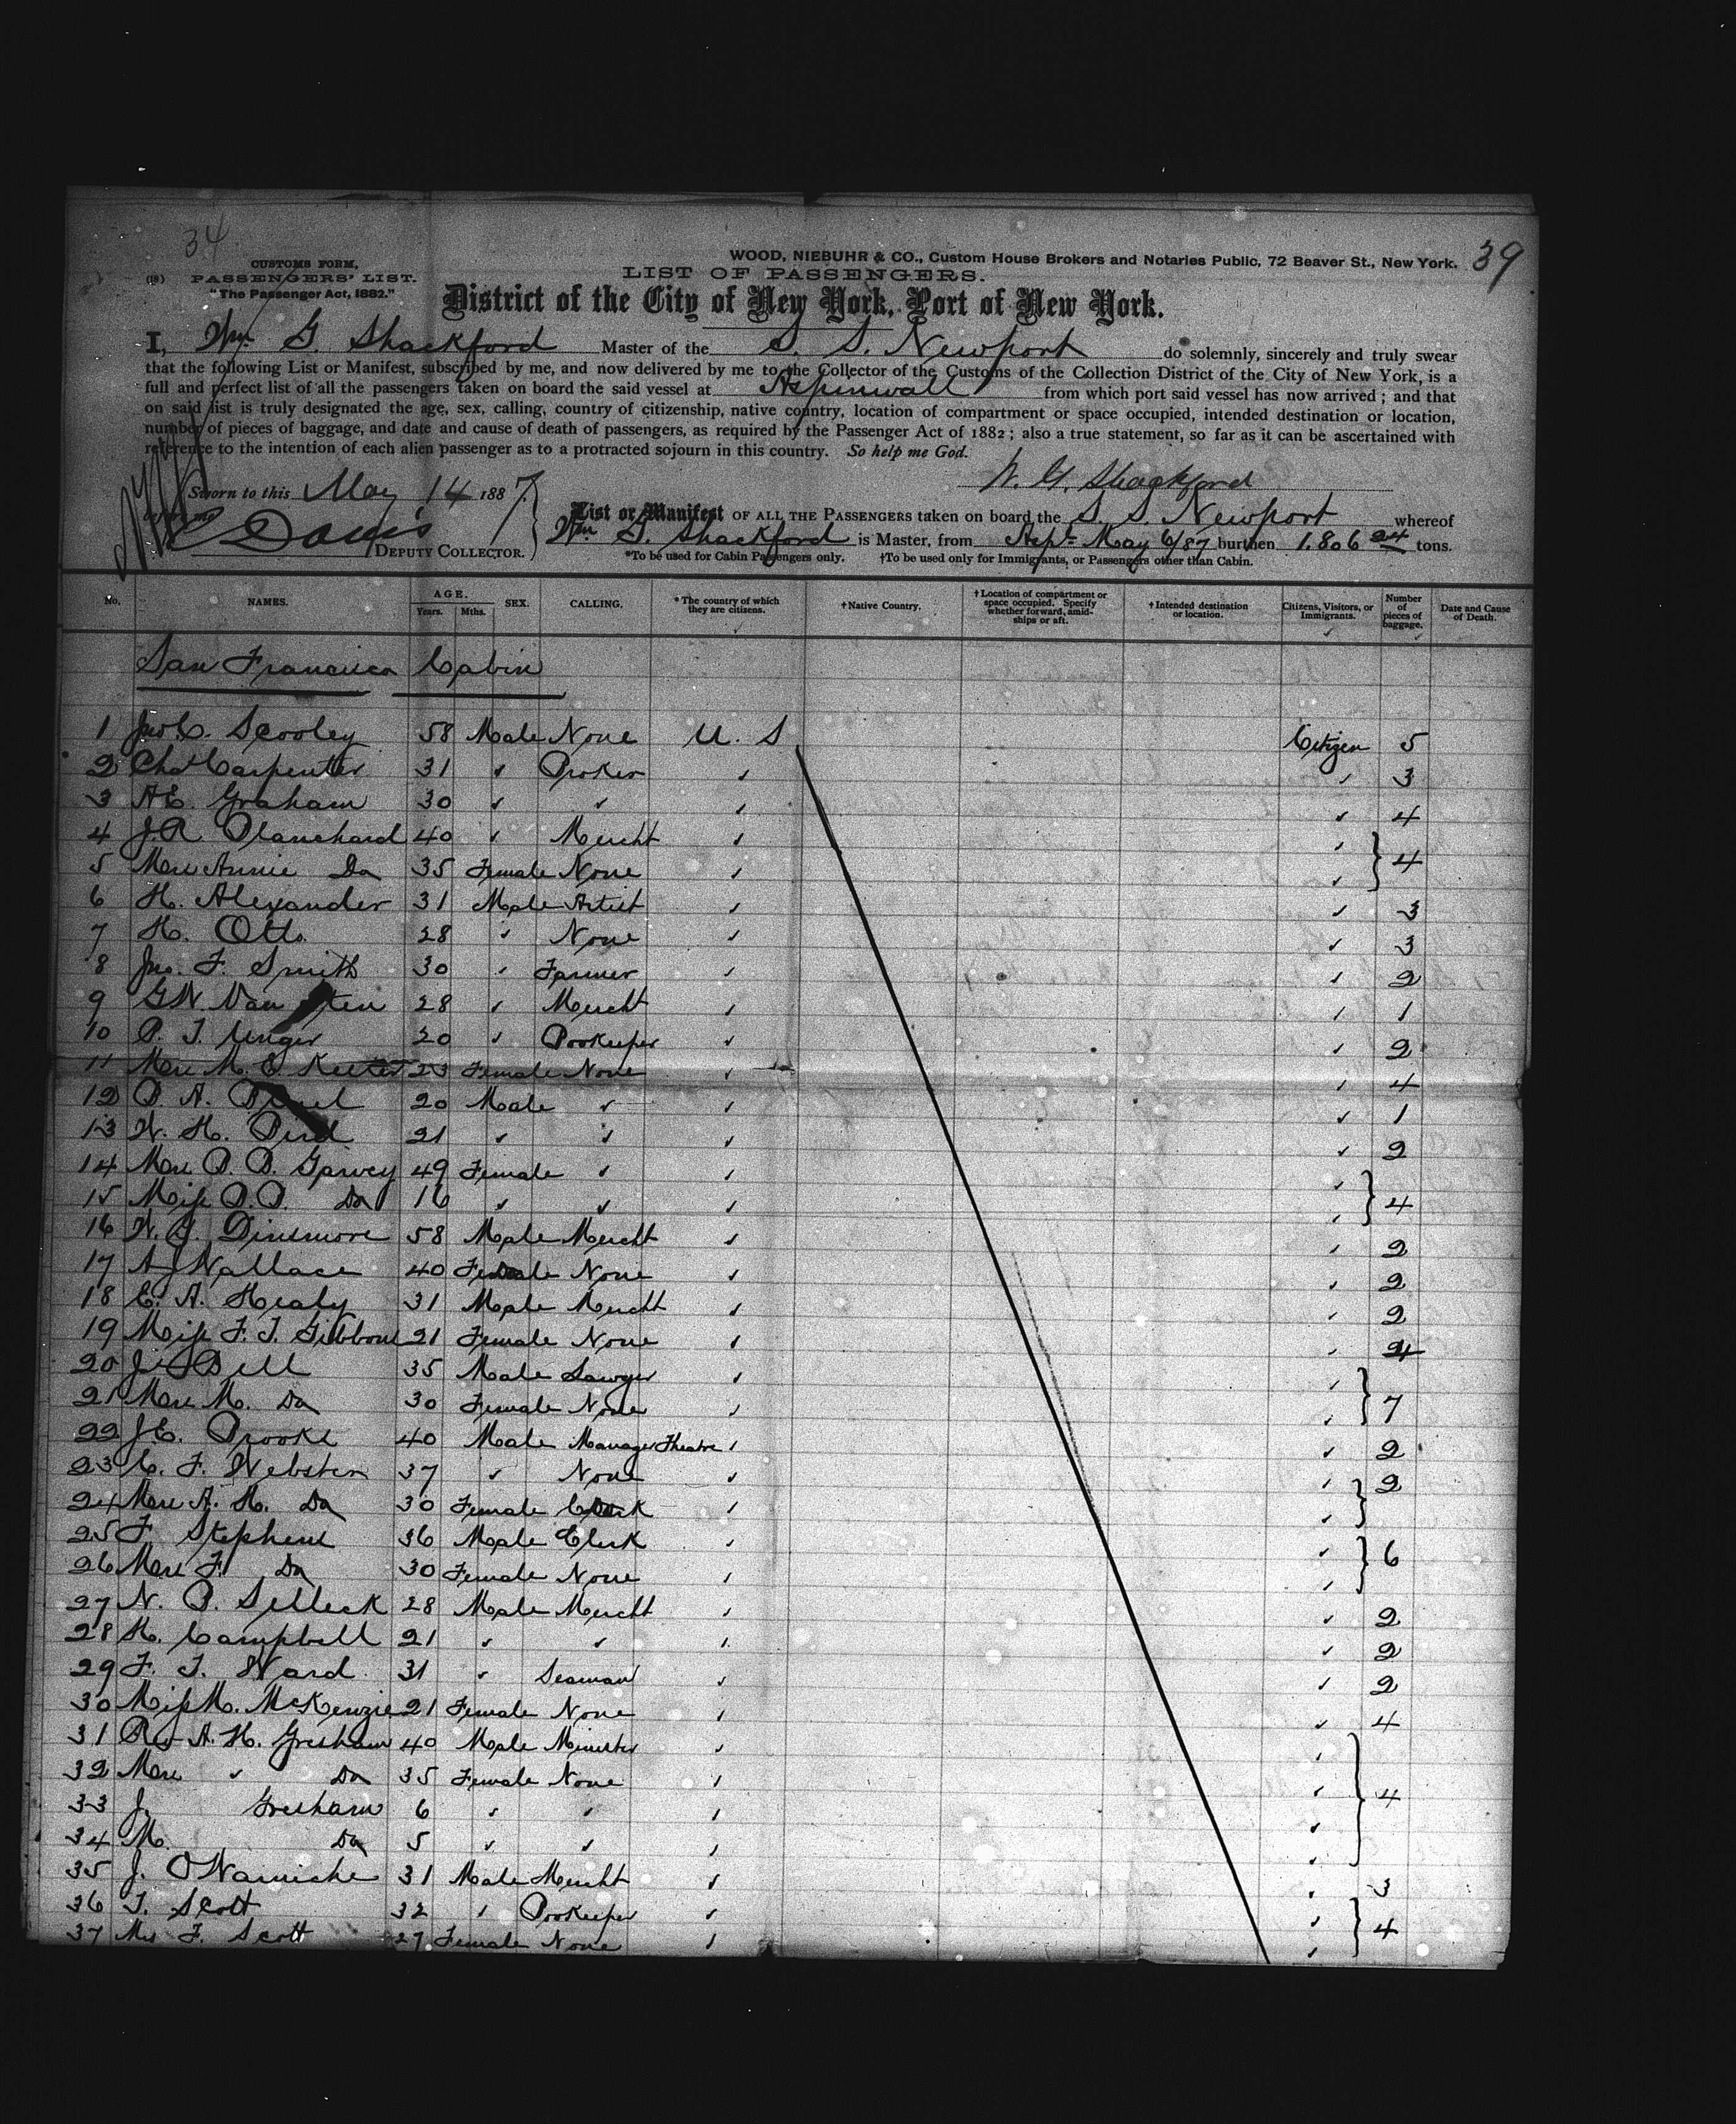 34
39
CUSTOMS FORM,
WOOD, NIEBUHR & CO., Custom House Brokers and Notaries Public, 72 Beaver St., New York.
(18) PASSENGERS' LIST.
LIST OF PASSENGERS.
"The Passenger Act, 1882."
District of the City of New York, Port of New York.
I, Wm. G. Shackford Master of the S. S. Newport do solemnly, sincerely and truly swear
that the following List or Manifest, subscribed by me, and now delivered by me to the Collector of the Customs of the Collection District of the City of New York, is a
full and perfect list of all the passengers taken on board the said vessel at Aspinwall from which port said vessel has now arrived; and that
on said list is truly designated the age, sex, calling, country of citizenship, native country, location of compartment or space occupied, intended destination or location,
number of pieces of baggage, and date and cause of death of passengers, as required by the Passenger Act of 1882; also a true statement, so far as it can be ascertained with
reference to the intention of each alien passenger as to a protracted sojourn in this country. So help me God.
W. G. Shackford
Sworn to this May 14 1887
before me
List or Manifest OF ALL THE PASSENGERS taken on board the S. S. Newport whereof
Davis DEPUTY COLLECTOR.
Wm G. Shackford is Master, from Aspl May 6/87 burthen 1.806 24 tons.
*To be used for Cabin Passengers only. †To be used only for Immigrants, or Passengers other than Cabin.
No. NAMES. AGE. Years. Mths. SEX. CALLING. *The country of which they are citizens. †Native Country. †Location of compartment or space occupied. Specify whether forward, amidships or aft. †Intended destination or location. Citizens, Visitors, or Immigrants. Number of pieces of baggage. Date and Cause of Death.
San Francisco Cabin
1 Jno C. Scooley 58 Male None U. S Citizen 5
2 Chas Carpenter 31 " Broker " " 3
3 A C. Graham 30 " " " " 4
4 J. R Blanchard 40 " Mercht " " } 4
5 Mrs Annie Do 35 Female None " "
6 H. Alexander 31 Male Artist " " 3
7 H. Otto 28 " None " " 3
8 Jno. F. Smith 30 " Farmer " " 2
9 G W. Van 28 " Mercht " " 1
10 B. J. Unger 20 " Bookeeper " " 2
11 Mrs M. E 23 Female None " " 4
12 B. A. 20 Male " " " 1
13 W. H. Bird 21 " " " " 2
14 Mrs B. B. Garvey 49 Female " " " } 4
15 Miss B. B. Do 16 " " " "
16 W. J. Dinsmore 58 Male Mercht " " 2
17 A J Wallace 40 Female None " " 2
18 E. A. Healy 31 Male Mercht " " 2
19 Miss F. T. Gibbons 21 Female None " " 4
20 J. Bell 35 Male Lawyer " " } 7
21 Mrs M. Do 30 Female None " "
22 J C. Brooke 40 Male Manager Theatre " " 2
23 C. F. Webster 37 " None " " } 2
24 Mrs A. H. Do 30 Female " "
25 F Stephens 36 Male Clerk " " } 6
26 Mrs F. Do 30 Female None " "
27 N. B. Selleck 28 Male Mercht " " 2
28 H. Campbell 21 " " " " 2
29 F. T. Ward 31 " Seaman " " 2
30 Miss M. McKenzie 21 Female None " " 4
31 Rev A. H. Gresham 40 Male Minister " " } 4
32 Mrs " Do 35 Female None " "
33 J. Gresham 6 " " " "
34 M. Do 5 " " " "
35 J. 31 Male Mercht " " 3
36 T. Scott 32 " Bookeeper " " } 4
37 Mrs F. Scott 27 Female None " "